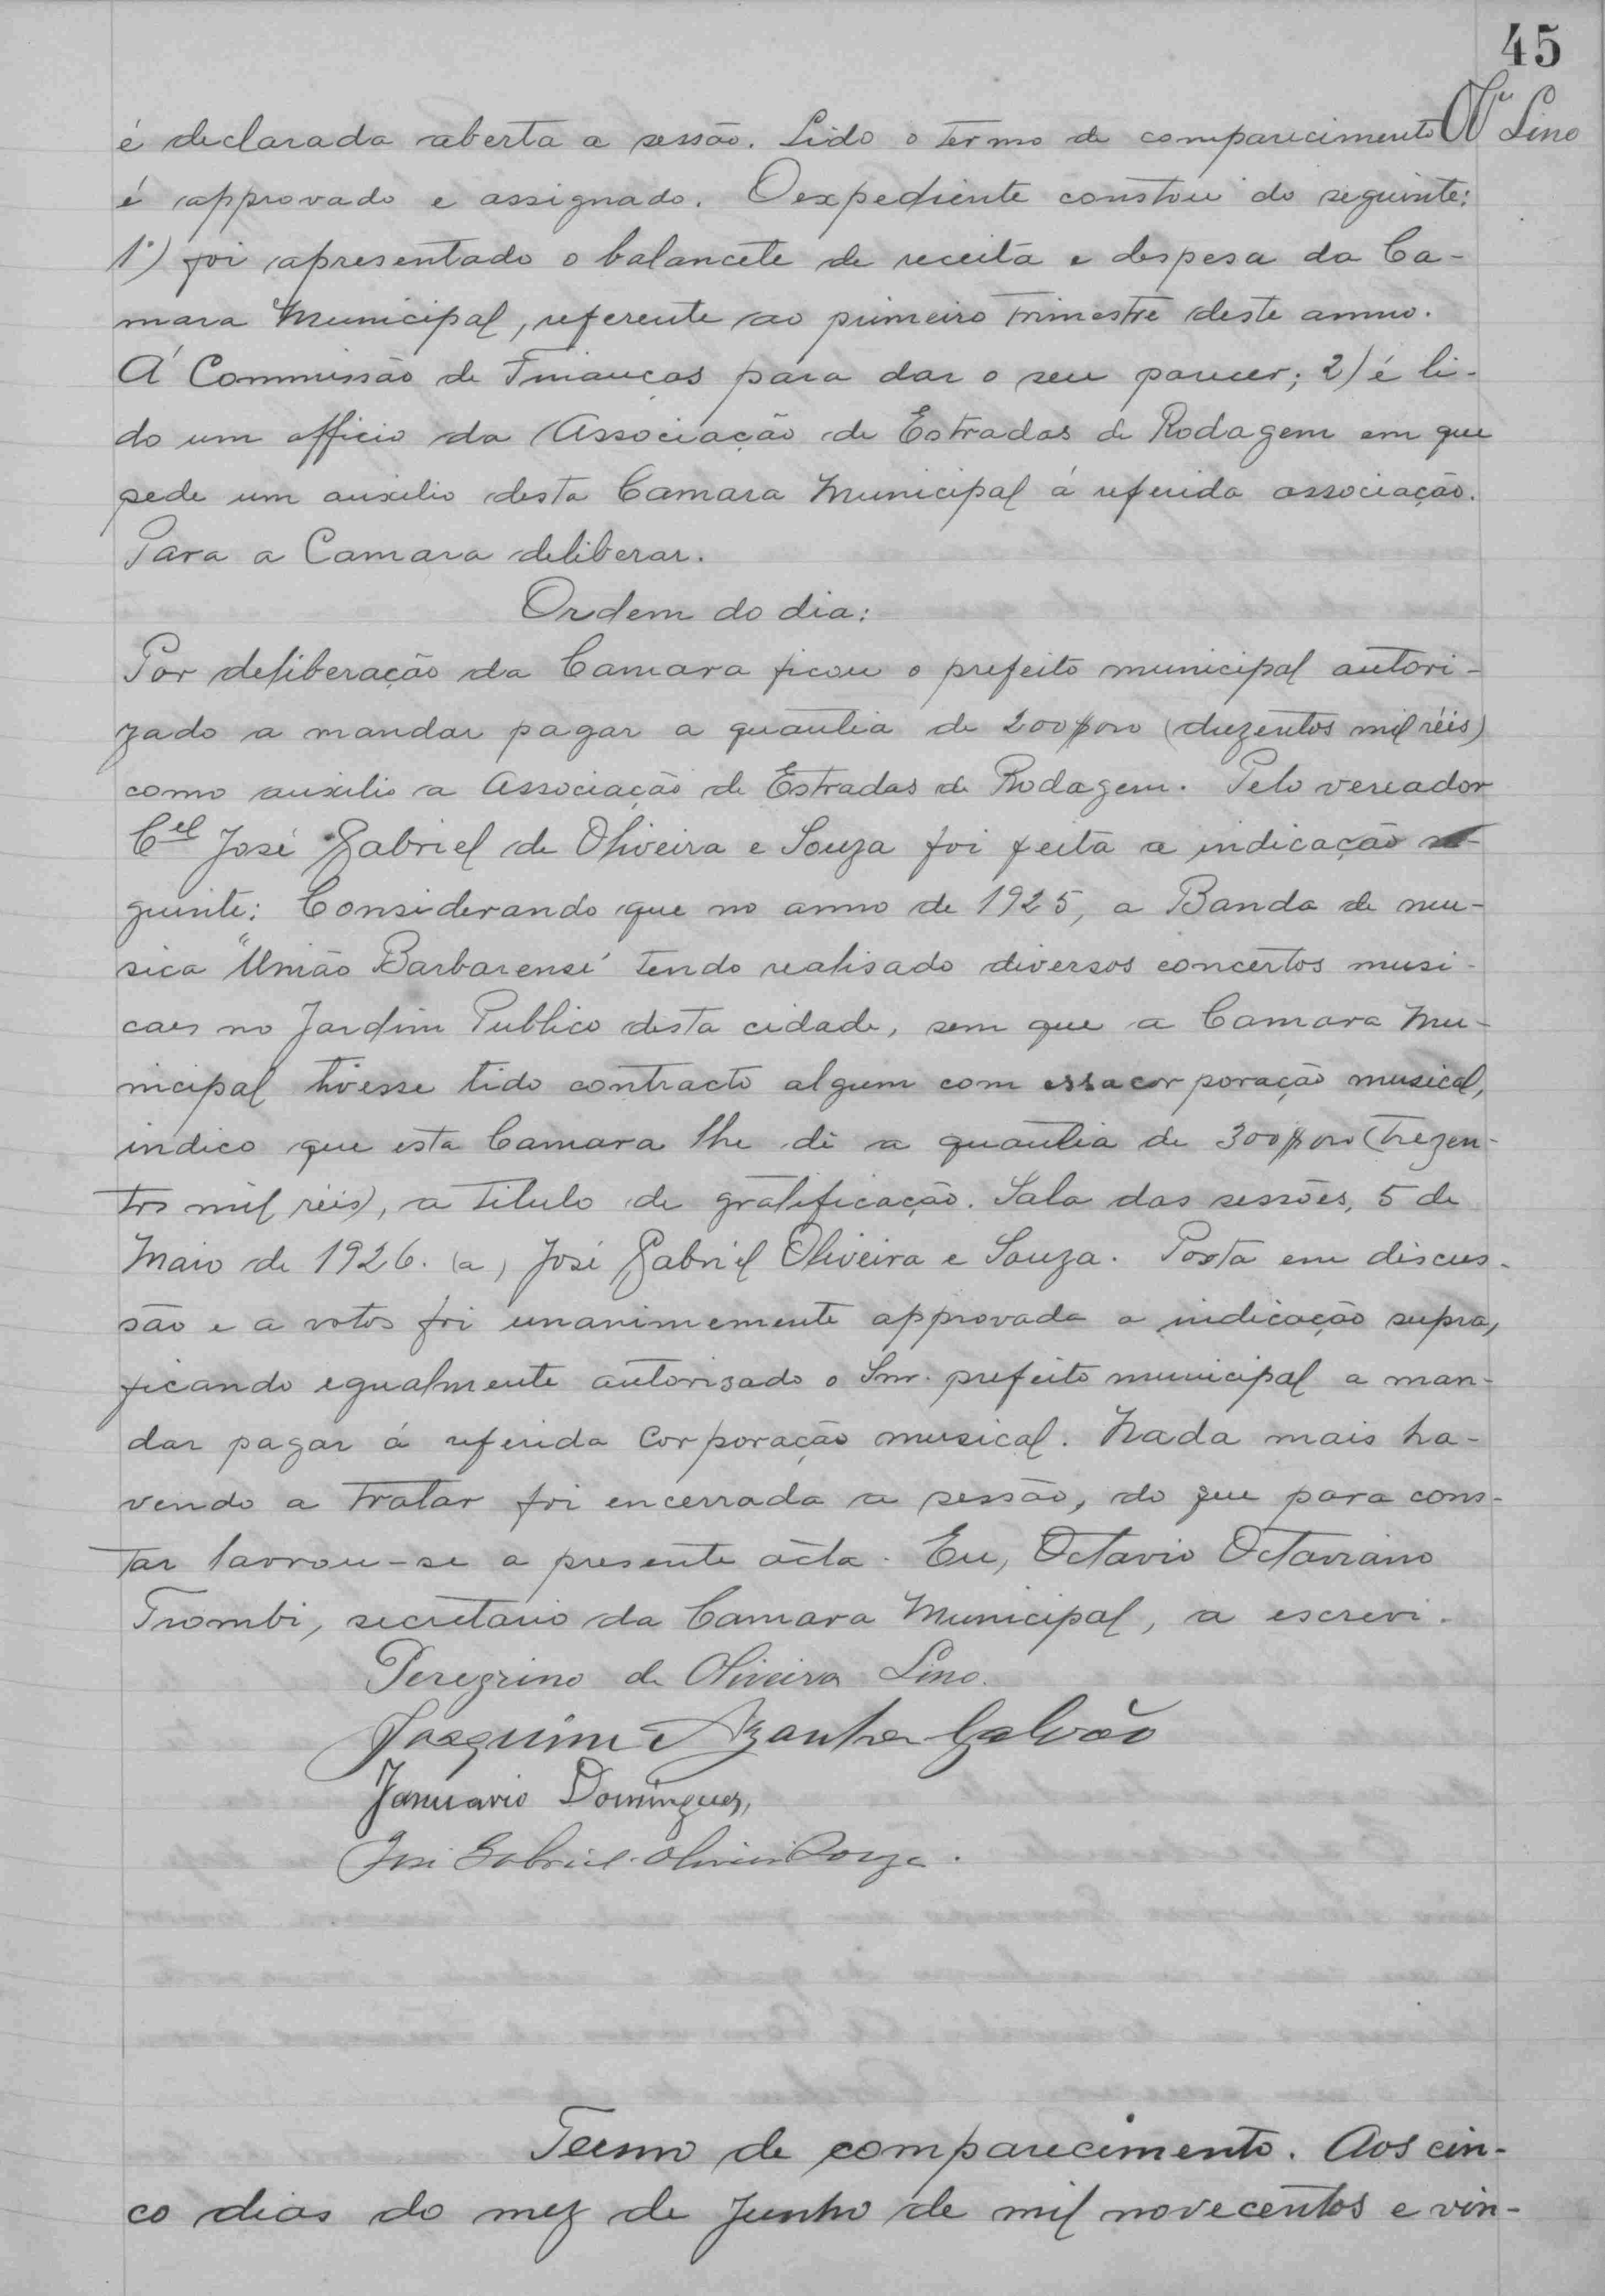 45
Lino
é declarada aberta a sessão. Lido o termo de comparecimento
é approvado e assignado. O expediente constou do seguinte:
1º) foi apresentado o balancete de receita e despesa da Ca-
mara Municipal, referente ao primeiro trimestre deste anno.
Á Commissão de Finanças para dar o seu parecer; 2) é li-
do um officio da Associação de Estradas de Rodagem em que
pede um auxilio desta Camara Municipal á referida associação.
Para a Camara deliberar.
Ordem do dia:
Por deliberação da Camara ficou o prefeito municipal autori-
zado a mandar pagar a quantia de 200$000 (duzentos mil réis)
como auxilio a Associação de Estradas de Rodagem. Pelo vereador
Cel José Gabriel de Oliveira e Souza foi feita a indicação se-
guinte: Considerando que no anno de 1925, a Banda de mu-
sica "União Barbarense" tendo realisado diversos concertos musi-
caes no Jardim Publico desta cidade, sem que a Camara Mu-
nicipal tivesse tido contracto algum com essa corporação musical,
indico que esta Camara lhe dê a quantia de 300$000 (trezen-
tos mil réis), a titulo de gratificação. Sala das sessões, 5 de
Maio de 1926. (a) José Gabriel Oliveira e Souza. Posta em discus-
são e a votos foi unanimemente approvada a indicação supra,
ficando egualmente autorisado o Snr. prefeito municipal a man-
dar pagar á referida corporação musical. Nada mais ha-
vendo a tratar foi encerrada a sessão, do que para cons-
tar lavrou-se a presente acta. Eu, Octavio Octaviano
Trombi, secretario da Camara Municipal, a escrevi.
Peregrino de Oliveira Lino.
Joaquim Azanha Galvão
Januario Domingues,
José Gabriel Oliveira Souza.
Termo de comparecimento. Aos cin-
co dias do mez de Junho de mil novecentos e vin-